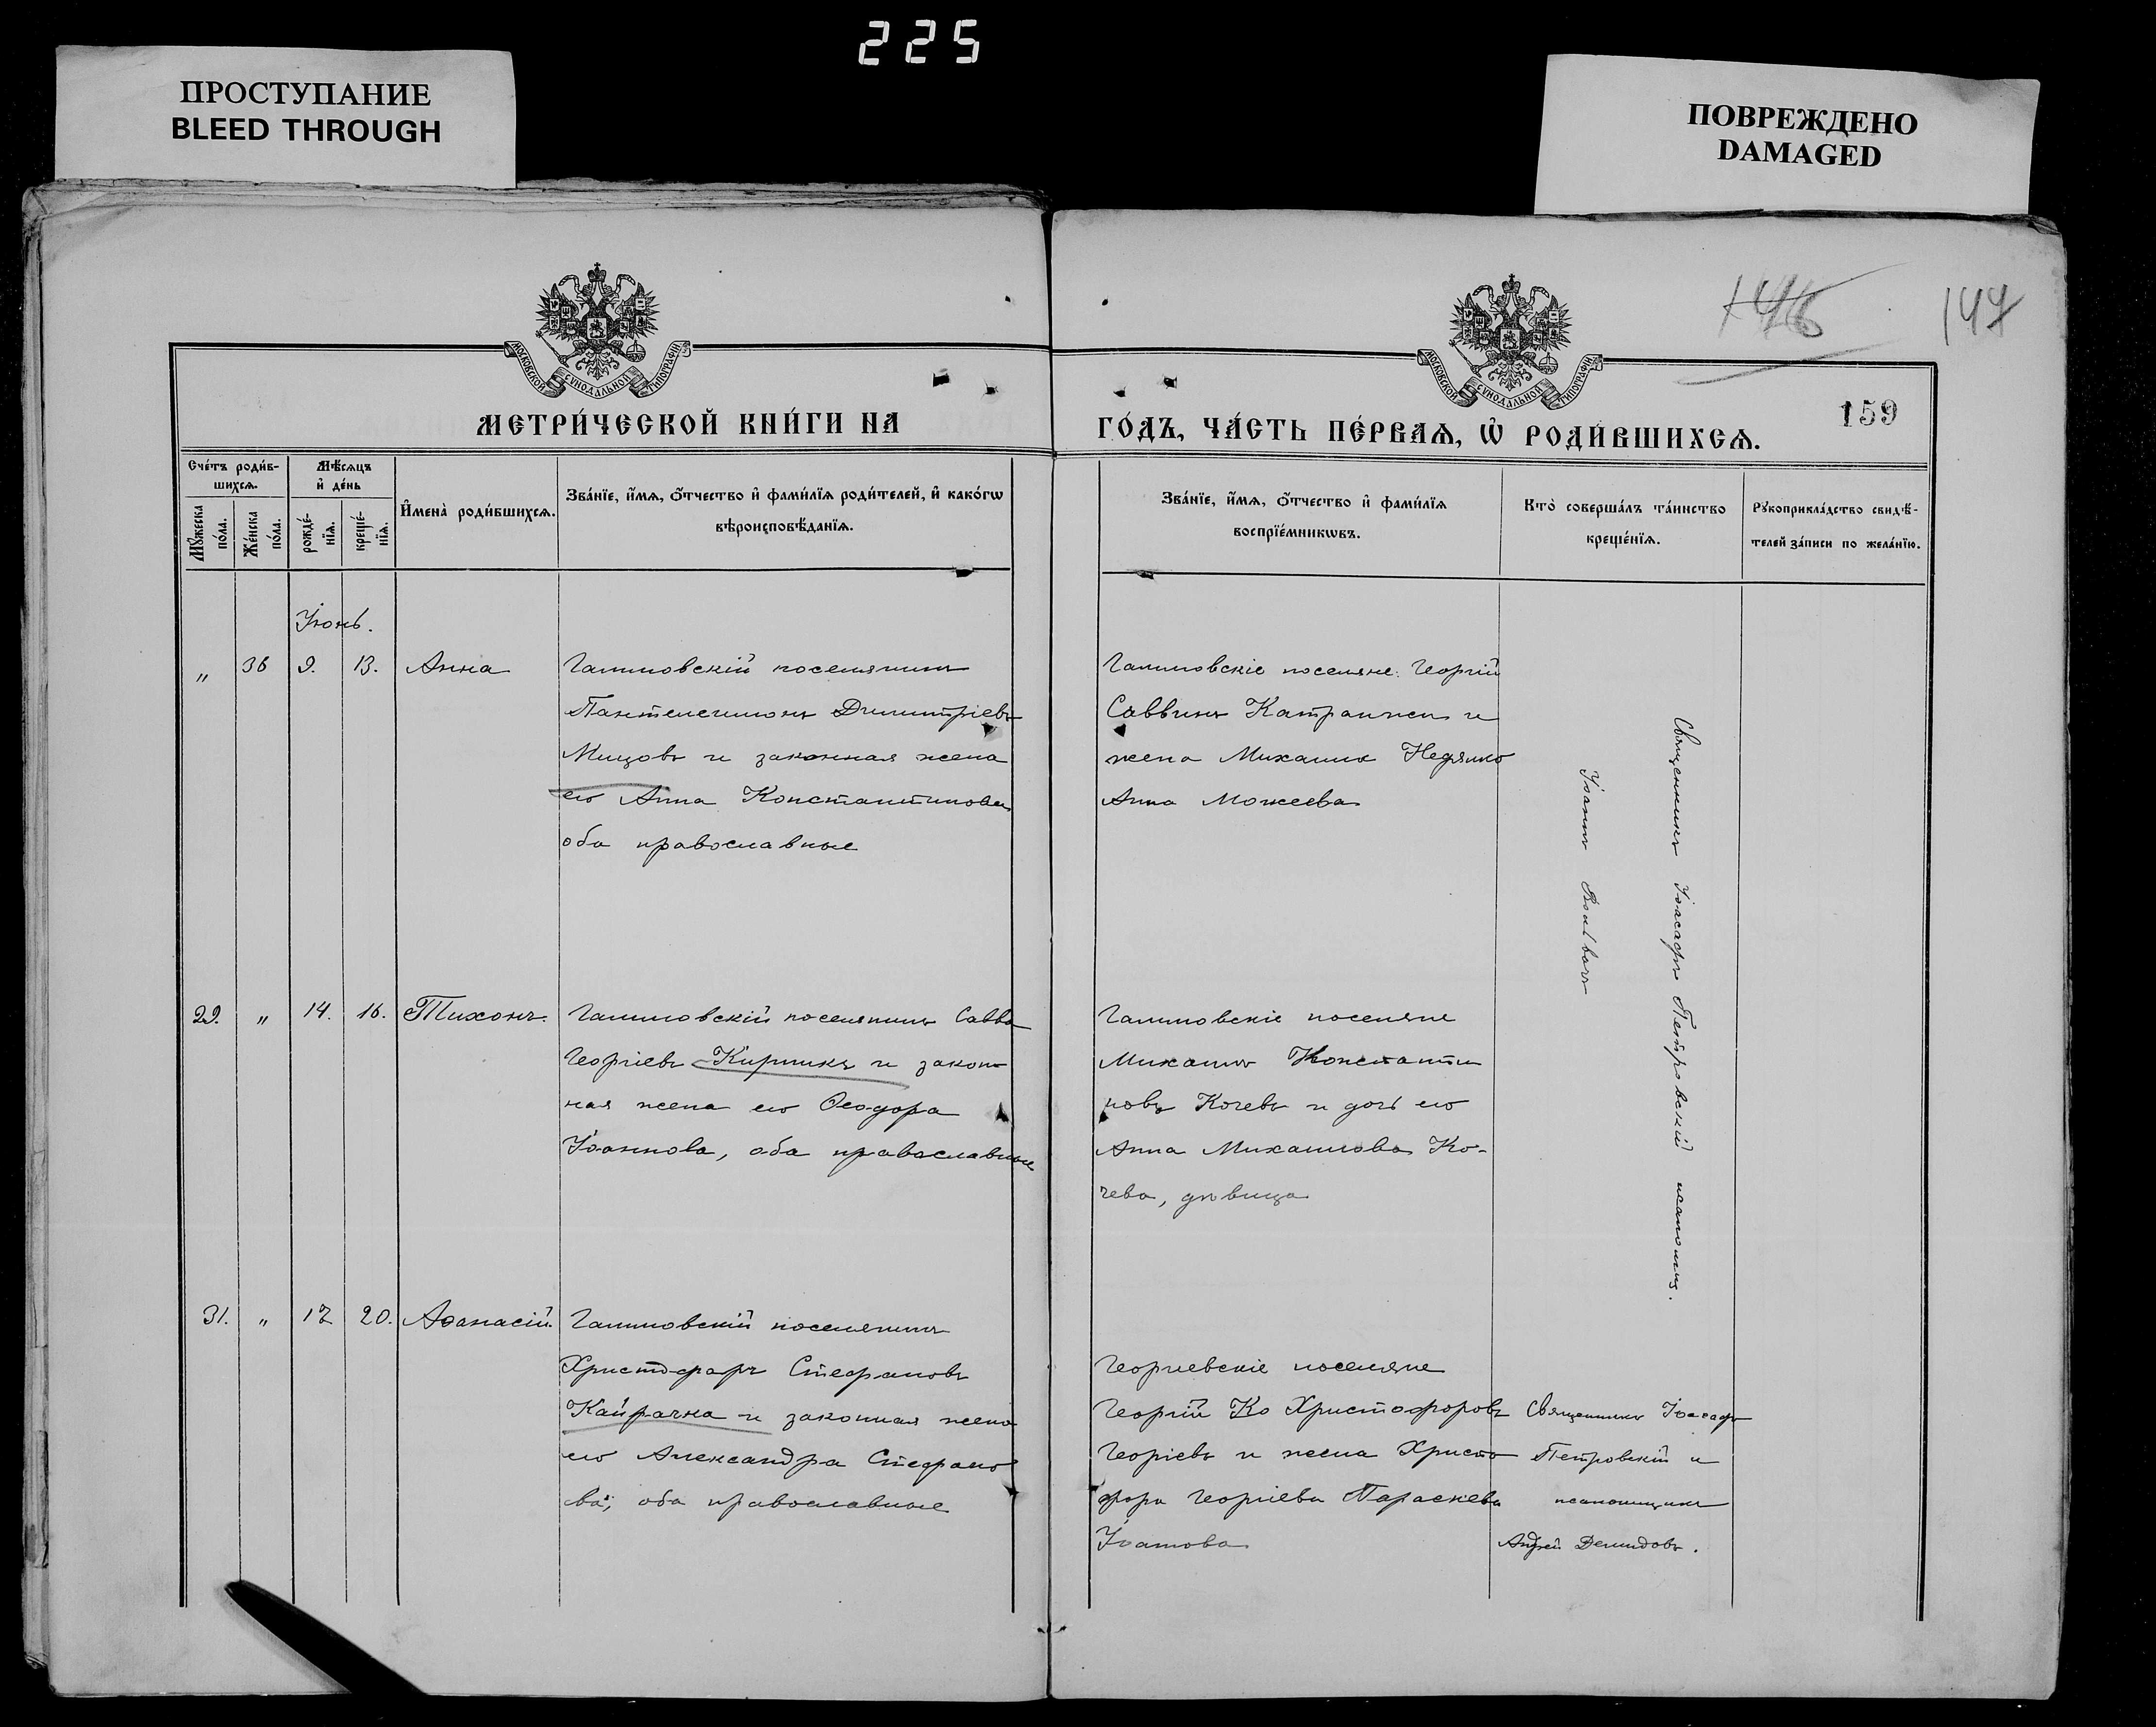 225
ПРОСТУПАНИЕ
BLEED THROUGH
ПОВРЕЖДЕНО
DAMAGED
146
147
МОСКОВСКОЙ СѴНОДАЛЬНОЙ ТИПОГРАФІИ
МОСКОВСКОЙ СѴНОДАЛЬНОЙ ТИПОГРАФІИ
159
МЕТРИ́ЧЕСКОЙ КНИ́ГИ НА
ГО́ДЪ, ЧА́СТЬ ПЕ́РВАѦ, Ѡ҆ РОДИ́ВШИХСѦ.
Сче́тъ роди́в-
шихсѧ.
Мꙋ́жеска по́ла.
Же́нска по́ла.
Мѣ́сѧцъ
и҆ де́нь
рожде́-нїѧ.
креще́-нїѧ.
И҆мена̀ роди́вшихсѧ.
Зва́нїе, и҆́мѧ, ѻ҆́тчество и҆ фами́лїѧ роди́телей, и҆ како́гѡ
вѣроисповѣ́данїѧ.
Зва́нїе, и҆́мѧ, ѻ҆́тчество и҆ фами́лїѧ
воспрїе́мникѡвъ.
Кто̀ соверша́лъ та́инство
креще́нїѧ.
Рꙋкоприкла́дство свидѣ́-
телей за́писи по жела́нїю.
Іюнь.
„ 36 9. 13. Анна
Галиловскій поселянинъ
Пантелеимонъ Димитріевъ
Мицовъ и законная жена
его Анна Константинова
оба православные
Галиловскіе поселяне: Георгій
Саввинъ Катранжи и
жена Михаила Недялко
Анна Можеева
Священникъ Іоасафъ Петровскій псаломщ.
Іоаннъ
29. „ 14. 16. Тихонъ.
Галиловскій поселянинъ Савва
Георгіевъ Кирпикъ и закон
ная жена его Ѳеодора
Іоаннова, оба православные
Галиловскіе поселяне
Михаилъ Константи
новъ Кочевъ и дочь его
Анна Михаилова Ко-
чева, дѣвица
31. „ 17 20. Аѳанасій.
Галиловскій поселянинъ
Христофоръ Стефановъ
Кайрачка и законная жена
его Александра Стефано
ва, оба православные
Георгіевскіе поселяне
Георгій Ко Христофоровъ
Георгіевъ и жена Христо
фора Георгіева Параскева
Іоаннова
Священникъ Іоасафъ
Петровскій и
псаломщикъ
Андрей Демидовъ.